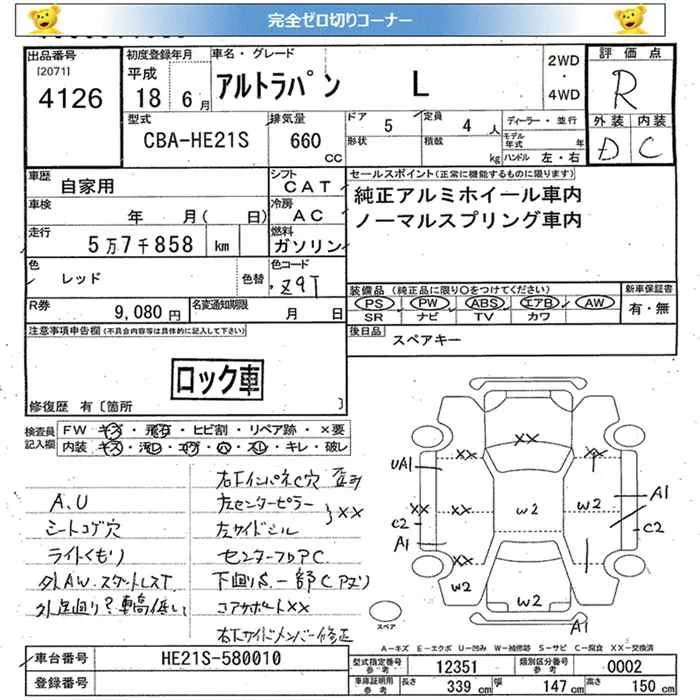 完全ゼロ切りコーナー
出品番号 初度登録年月 車名・グレード 評価点
[2071] 平成 2WD
4126 18 6月 アルトラパン L ・ R
4WD
型式 排気量 ドア 5 定員 4 人 ディーラー・並行 外装 内装
CBA-HE21S 660 cc 形状 積載 kg モデル年式 年 D C
ハンドル 左・右
車歴 自家用 シフト CAT セールスポイント(正常に機能するものに限ります)
車検 年 月( 日) 冷房 AC 純正アルミホイール車内
走行 5万7千858 km 燃料 ガソリン ノーマルスプリング車内
色 レッド 色替 色コード Z9T
装備品 (純正品に限り○をつけてください) 新車保証書
R券 9,080円 名変通知期限 月 日 PS PW ABS エアB AW 有・無
SR ナビ TV カワ
注意事項申告欄(不具合内容等は具体的に記入して下さい) 後日品 スペアキー
ロック車
修復歴 有〔箇所 〕
検査員記入欄 FW キズ・飛石・ヒビ割・リペア跡・×要
内装 キズ・汚レ・コゲ・穴・スレ・キレ・破レ
右下インパネC穴
A.U 左センターピラー
シートコゲ穴 左サイドシル XX
ライトくもり センターフロアC
外AW.スタットレスT 下回りS.一部Cアリ
外足回り?車高低い コアサポートXX
右下サイドメンバー修正
XX
UA1 XX XX
XX XX W2 W2 A1
C2 C2
A1 XX
W2 W2
スペア A1
A-キズ E-エクボ U-凹み W-補修跡 S-サビ C-腐食 XX-交換済
車台番号 HE21S-580010 型式指定番号 参考 12351 類別区分番号 参考 0002
登録番号 車庫証明用 参考 長さ 339 cm 幅 147 cm 高さ 150 cm